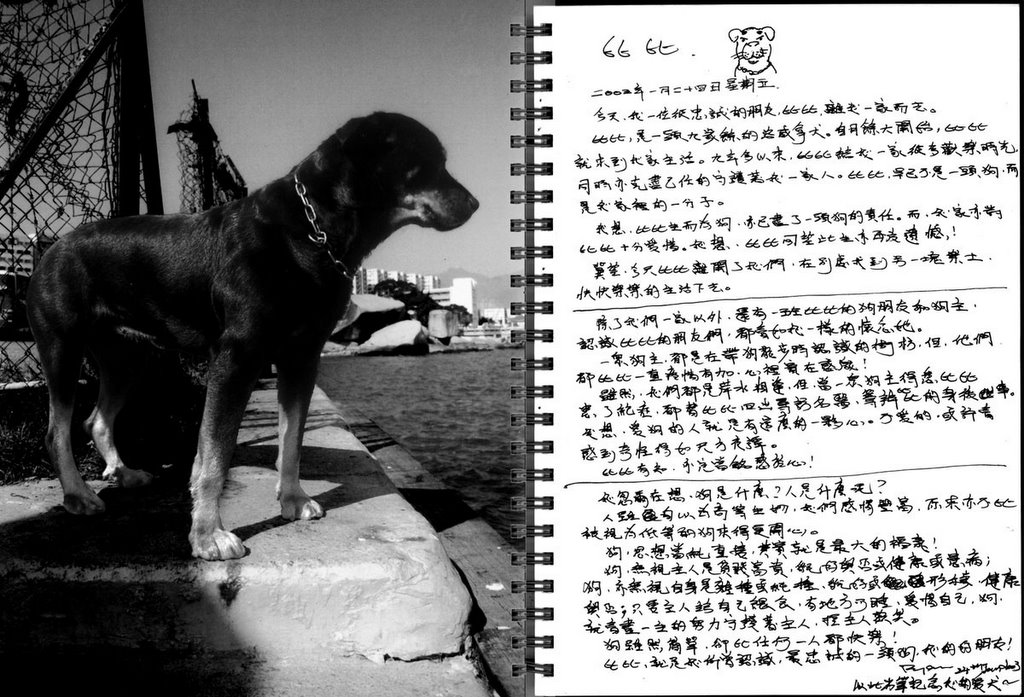 比比.
二00三年一月二十四日星期五.
今天,我一位很忠誠的朋友,比比,離我一家而去。
比比,是一頭九歲餘的洛威拿犬。自月餘大開始,比比
就來到我家生活。九年多以來,比比給我一家很多歡樂時光,
同時亦克盡己任的守護著我一家人。比比,早已不是一頭狗,而
是我家裡的一分子。
我想,比比生而為狗,亦已盡了一頭狗的責任。而,我家亦對
比比十分愛惜。我想,比比可堪此生亦再沒遺憾!
今天比比離開了我們,在別處找到另一塊樂土,
快快樂樂的生活下去。
除了我們一家以外,還有一班比比的狗朋友和狗主,
認識比比的朋友們,都會如我一樣的懷念她。
一眾狗主,都是在帶狗散步時認識的街坊,但,他們
都比比一直疼惜有加,心裡實在感激!
雖然,我們都是萍水相逢,但當一眾狗主得悉比比
患了絕症,都替比比四出尋訪名醫,籌辦比比的身後事。
我想,愛狗的人就是有這麼的一顆心。可愛的,或許會
感到人性得如此
比比有知,亦定當銘感於心!
我忽爾在想,狗是什麼?人是什麼呢?
人雖自以為高等生物,我們感情豐富,原來亦不比
被視為低等的狗來得更開心。
狗,思想當純直接,其實就是最大的福氣!
狗,無視主人是貧賤富貴,的美醜或健康或患病;
狗,亦無視自身是雜種或純種,的或形樣,健康
與否;只要主人給自己糧食,有地方可睡,愛惜自己,狗,
就會盡一生的努力守護著主人,逗主人歡笑。
狗雖然簡單,卻比任何一人都快樂!
比比,就是我所認識,最忠誠的一頭狗,我的好朋友!
Ryan 24th Jan, 2003
以此為筆記念我的愛犬~